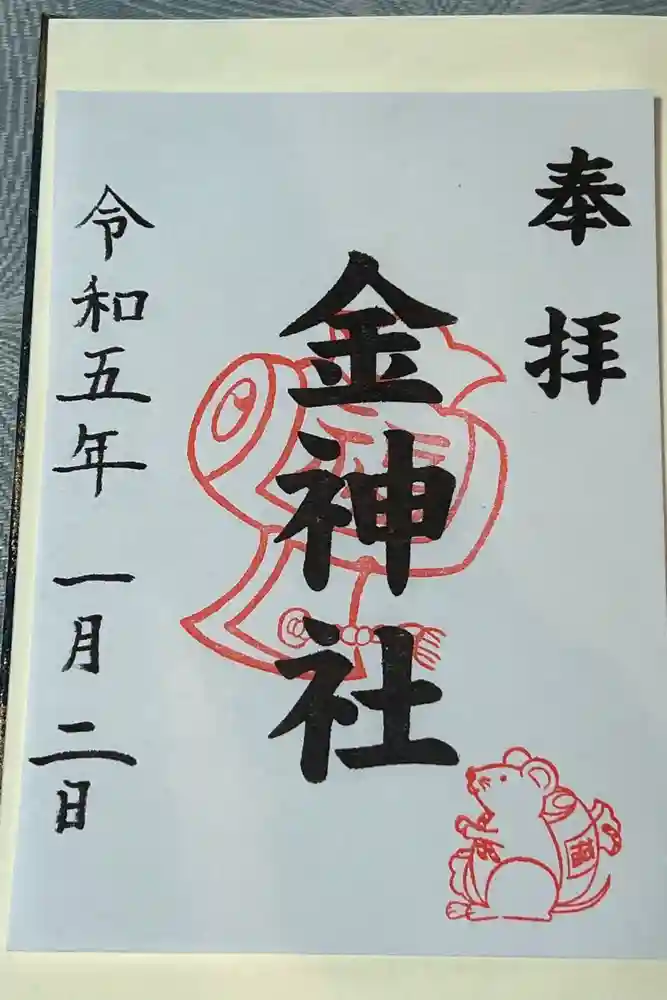 奉拝
金神社
令和五年一月二日
福